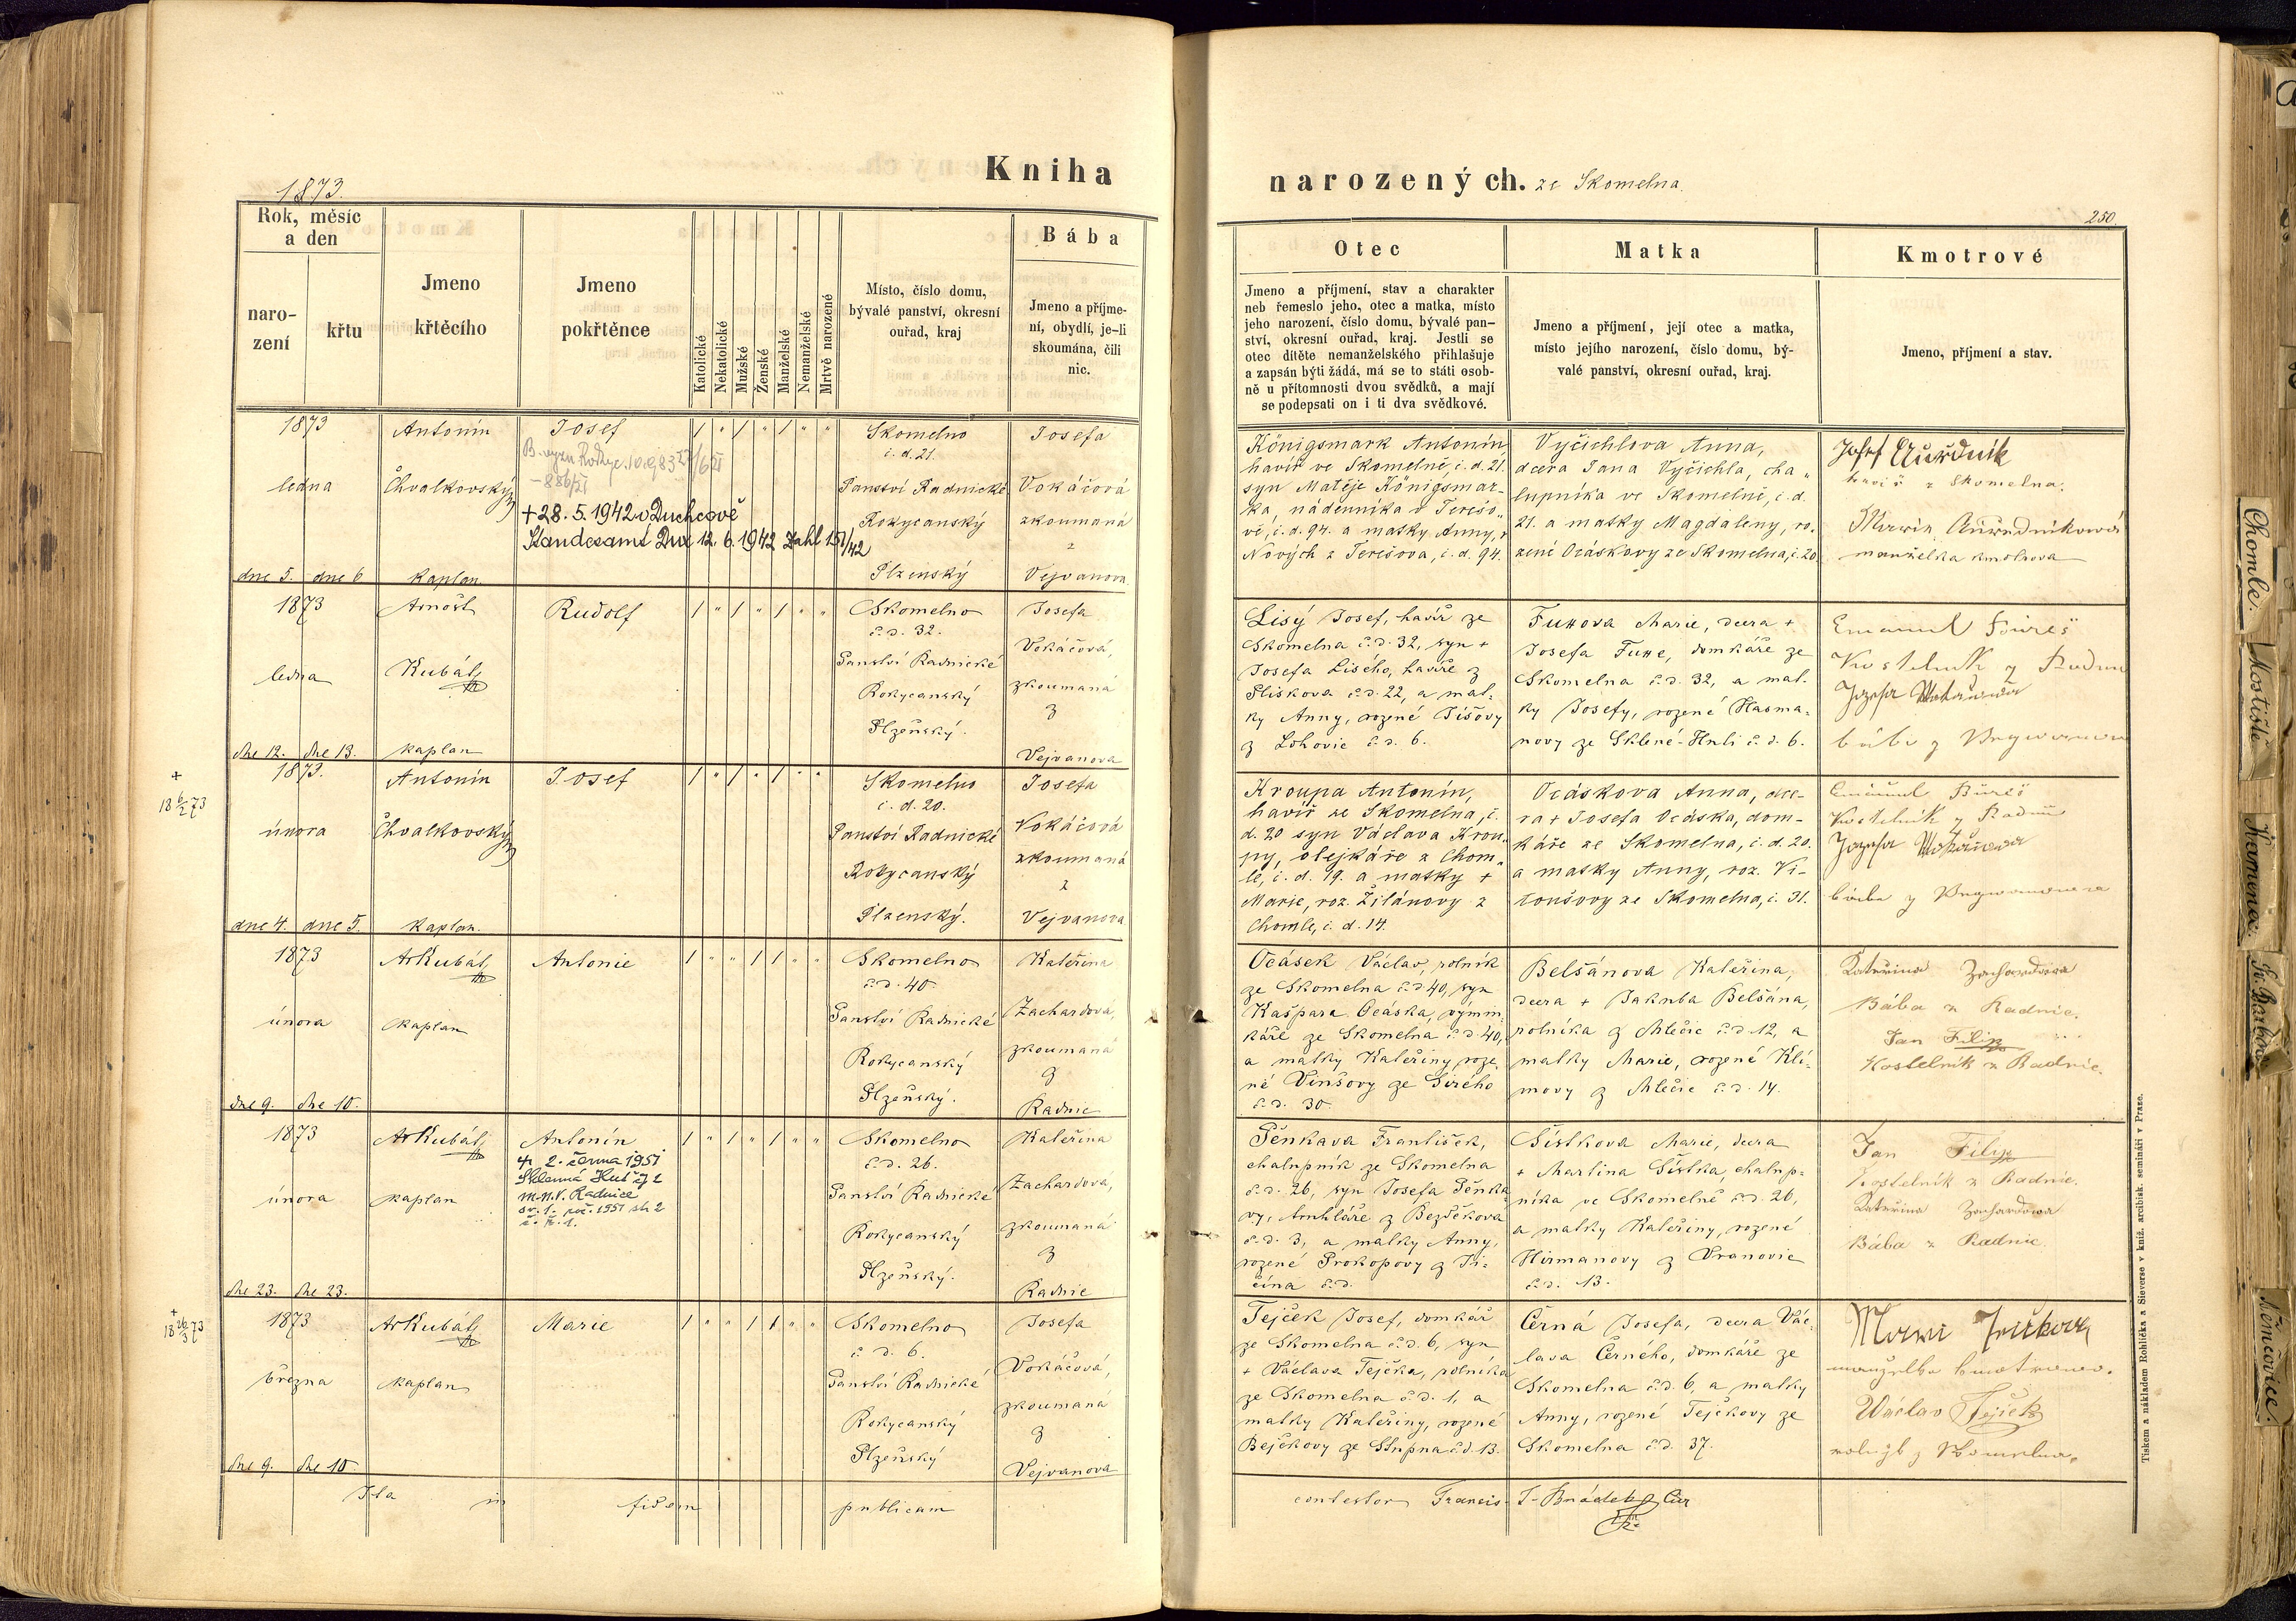 Kniha
narozených. ze Skomelna.
1873.
250.
Rok, měsíc
a den
naro-
zení
křtu
Jmeno
křtěcího
Jmeno
pokřtěnce
Katolické
Nekatolické
Mužské
Ženské
Manželské
Nemanželské
Mrtvě narozené
Místo, číslo domu,
bývalé panství, okresní
ouřad, kraj
Bába
Jmeno a příjme-
ní, obydlí, je-li
skoumána, čili
nic.
Otec
Jmeno a příjmení, stav a charakter
neb řemeslo jeho, otec a matka, místo
jeho narození, číslo domu, bývalé pan-
ství, okresní ouřad, kraj. Jestli se
otec dítěte nemanželského přihlašuje
a zapsán býti žádá, má se to státi osob-
ně u přítomnosti dvou svědků, a mají
se podepsati on i ti dva svědkové.
Matka
Jmeno a příjmení, její otec a matka,
místo jejího narození, číslo domu, bý-
valé panství, okresní ouřad, kraj.
Kmotrové
Jmeno, příjmení a stav.
1873
ledna
dne 5. dne 6
Antonín
Chvalkovský
kaplan.
Josef
+ 28. 5. 1942 v Duchcově
Standesamt Dux 12. 6. 1942 Zahl 151/42
Skomelno
č. d. 21.
Panství Radnické
Rokycanský
Plzenský
Josefa
Vokáčová
zkoumaná
z
Vejvanova
Königsmark Antonín,
havíř ve Skomelně, č. d. 21.
syn Matěje Königsmar-
ka, nádenníka v Terešo-
vě, č. d. 94. a matky Anny,
Nových z Terešova, č. d. 94.
Vyčichlova Anna,
dcera Jana Vyčichla, cha-
lupníka ve Skomelně, č. d.
21. a matky Magdaleny, ro-
zené Ocáskovy ze Skomelna, č. 20
Josef
havíř z Skomelna.
manželka kmotrova
1873
ledna
dne 12. dne 13.
Arnošt
Kubát,
kaplan
Rudolf
Skomelno
č. d. 32.
Panství Radnické
Rokycanský
Plzeňský.
Josefa
Vokáčová,
zkoumaná
z
Vejvanova
Lisý Josef, havíř ze
Skomelna č. d. 32, syn +
Josefa Lisého, havíře z
Plískova č. d. 22, a mat-
ky Anny, rozené Tíšovy
z Lohovic č. d. 6.
Fuxova Marie, dcera +
Josefa Fuxe, domkáře ze
Skomelna č. d. 32, a mat-
ky Josefy, rozené Hasma-
novy ze Sklené-Huti č. d. 6.
Emanuel Bureš
Kostelník z Radnic
+
18 6/2 73
1873.
února
dne 4. dne 5.
Antonín
Chvalkovský
kaplan.
Josef
Skomelno
č. d. 20.
Panství Radnické
Rokycanský
Plzenský.
Josefa
Vokáčová
zkoumaná
z
Vejvanova
Kroupa Antonín,
havíř ze Skomelna, č.
d. 20 syn Václava Krou-
py, olejkáře z Chom-
le, č. d. 19. a matky +
Marie, roz. Žilánovy z
Chomle, č. d. 14.
Ocáskova Anna, dce-
ra + Josefa Ocáska, dom-
káře ze Skomelna, č. d. 20.
a matky Anny, roz. Vi-
toušovy ze Skomelna, č. 31.
Emanuel Bureš
Kostelník z Radnic
1873
února
dne 9. dne 10.
Ar Kubát,
kaplan
Antonie
Skomelno
č. d. 40.
Panství Radnické
Rokycanský
Plzeňský.
Kateřina
Zachardová,
zkoumaná
z
Radnic
Ocásek Václav, rolník
ze Skomelna č. d. 40, syn
Kašpara Ocáska, výmin-
káře ze Skomelna č. d. 40,
a matky Kateřiny, roze-
né Vinšovy ze Sirého
č. d. 30.
Belšánova Kateřina,
dcera + Jakuba Belšána,
rolníka z Mlečic č. d. 12, a
matky Marie, rozené Kli-
movy z Mlečic č. d. 14.
Kateřina Zachardova
Bába z Radnic.
Jan Filip
Kostelník z Radnic.
1873
února
dne 23. dne 23.
Ar Kubát,
kaplan
Antonín
2. června 1951
Sklenná Huť čp 2
M.N.V. Radnice
sv. 1. roč. 1951 str. 2
č. ř. 1.
Skomelno
č. d. 26.
Panství Radnické
Rokycanský
Plzeňský.
Kateřina
Zachardová,
zkoumaná
z
Radnic
Pěnkava František,
chalupník ze Skomelna
č. d. 26, syn Josefa Pěnka-
vy, truhláře z Bezděkova
č. d. 3, a matky Anny,
rozené Prokopovy z Ji-
čína č. d.
Šístkova Marie, dcera
+ Martina Šístka, chalup-
níka ve Skomelně č. d. 26,
a matky Kateřiny, rozené
Hirmanovy z Vranovic
č. d. 13.
Jan Filip
Kostelník z Radnic.
Kateřina Zachardova
Bába z Radnic.
+
18 26/3 73
1873
března
dne 9. dne 10.
Ar Kubát,
kaplan
Marie
Skomelno
č. d. 6.
Panství Radnické
Rokycanský
Plzeňský
Josefa
Vokáčová,
zkoumaná
z
Vejvanova
Tejček Josef, domkář
ze Skomelna č. d. 6, syn
+ Václava Tejčka, rolníka
ze Skomelna č. d. 1, a
matky Kateřiny, rozené
Bejčkovy ze Stupna č. d. 13.
Černá Josefa, dcera Vác-
lava Černého, domkáře ze
Skomelna č. d. 6, a matky
Anny, rozené Tejčkovy ze
Skomelna č. d. 37.
manželka kmotrova.
Václav Tejček
rolník z Skomelna.
Ita in fidem publicam
contestor Francis.
Cur
Tiskem a nákladem Rohlíčka a Sieverse v kníž. arcibisk. semináři v Praze.
Chomle.
Mostiště
Kamenec.
Sv. Barbora
Němčovice.